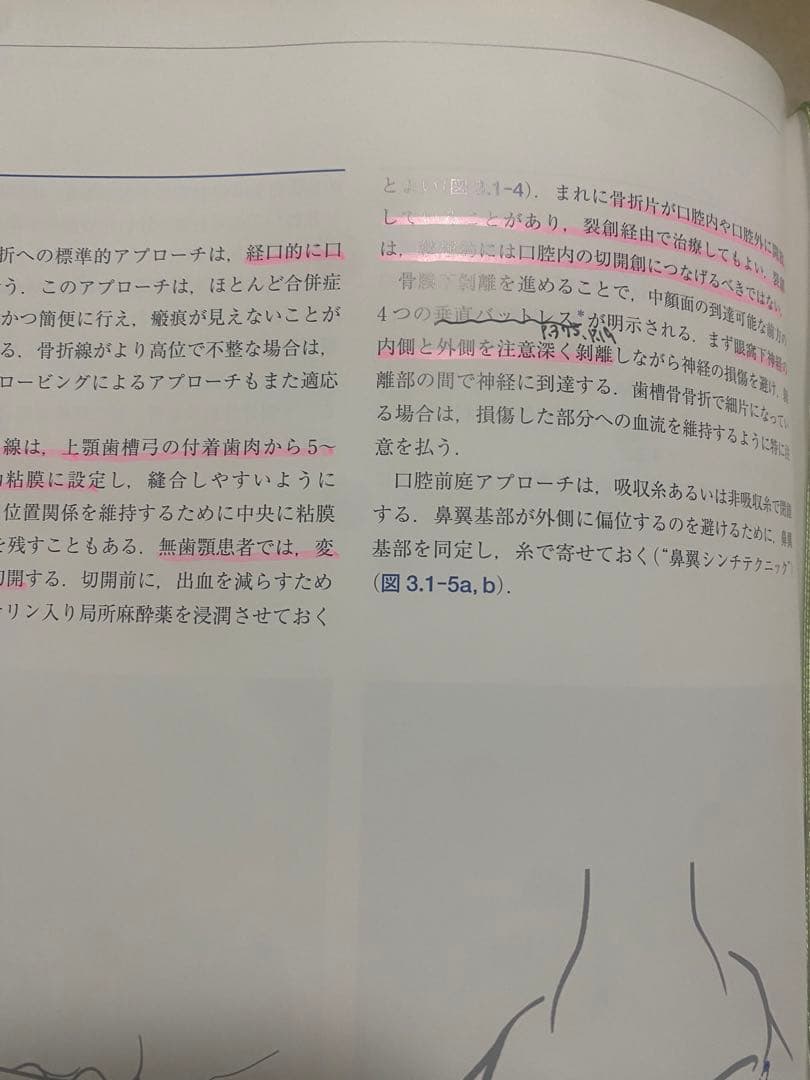 折への標準的アプローチは，経口的に口
う．このアプローチは，ほとんど合併症
かつ簡便に行え，瘢痕が見えないことが
る．骨折線がより高位で不整な場合は，
ロービングによるアプローチもまた適応
線は，上顎歯槽弓の付着歯肉から5〜
粘膜に設定し，縫合しやすいように
位置関係を維持するために中央に粘膜
を残すこともある．無歯顎患者では，変
切開する．切開前に，出血を減らすため
リン入り局所麻酔薬を浸潤させておく
とよい（図3.1-4）．まれに骨折片が口腔内や口腔外に
していることがあり，裂創経由で治療してもよい．裂創
は，　　的には口腔内の切開創につなげるべきではない．
骨膜下剝離を進めることで，中顔面の到達可能な前方の
4つの垂直バットレス*が明示される．まず眼窩下神経の
P.345. P.19
内側と外側を注意深く剝離しながら神経の損傷を避け，剝
離部の間で神経に到達する．歯槽骨骨折で細片になってい
る場合は，損傷した部分への血流を維持するように特に注
意を払う．
口腔前庭アプローチは，吸収糸あるいは非吸収糸で閉創
する．鼻翼基部が外側に偏位するのを避けるために，鼻翼
基部を同定し，糸で寄せておく（“鼻翼シンチテクニック”）
（図3.1-5a, b）．